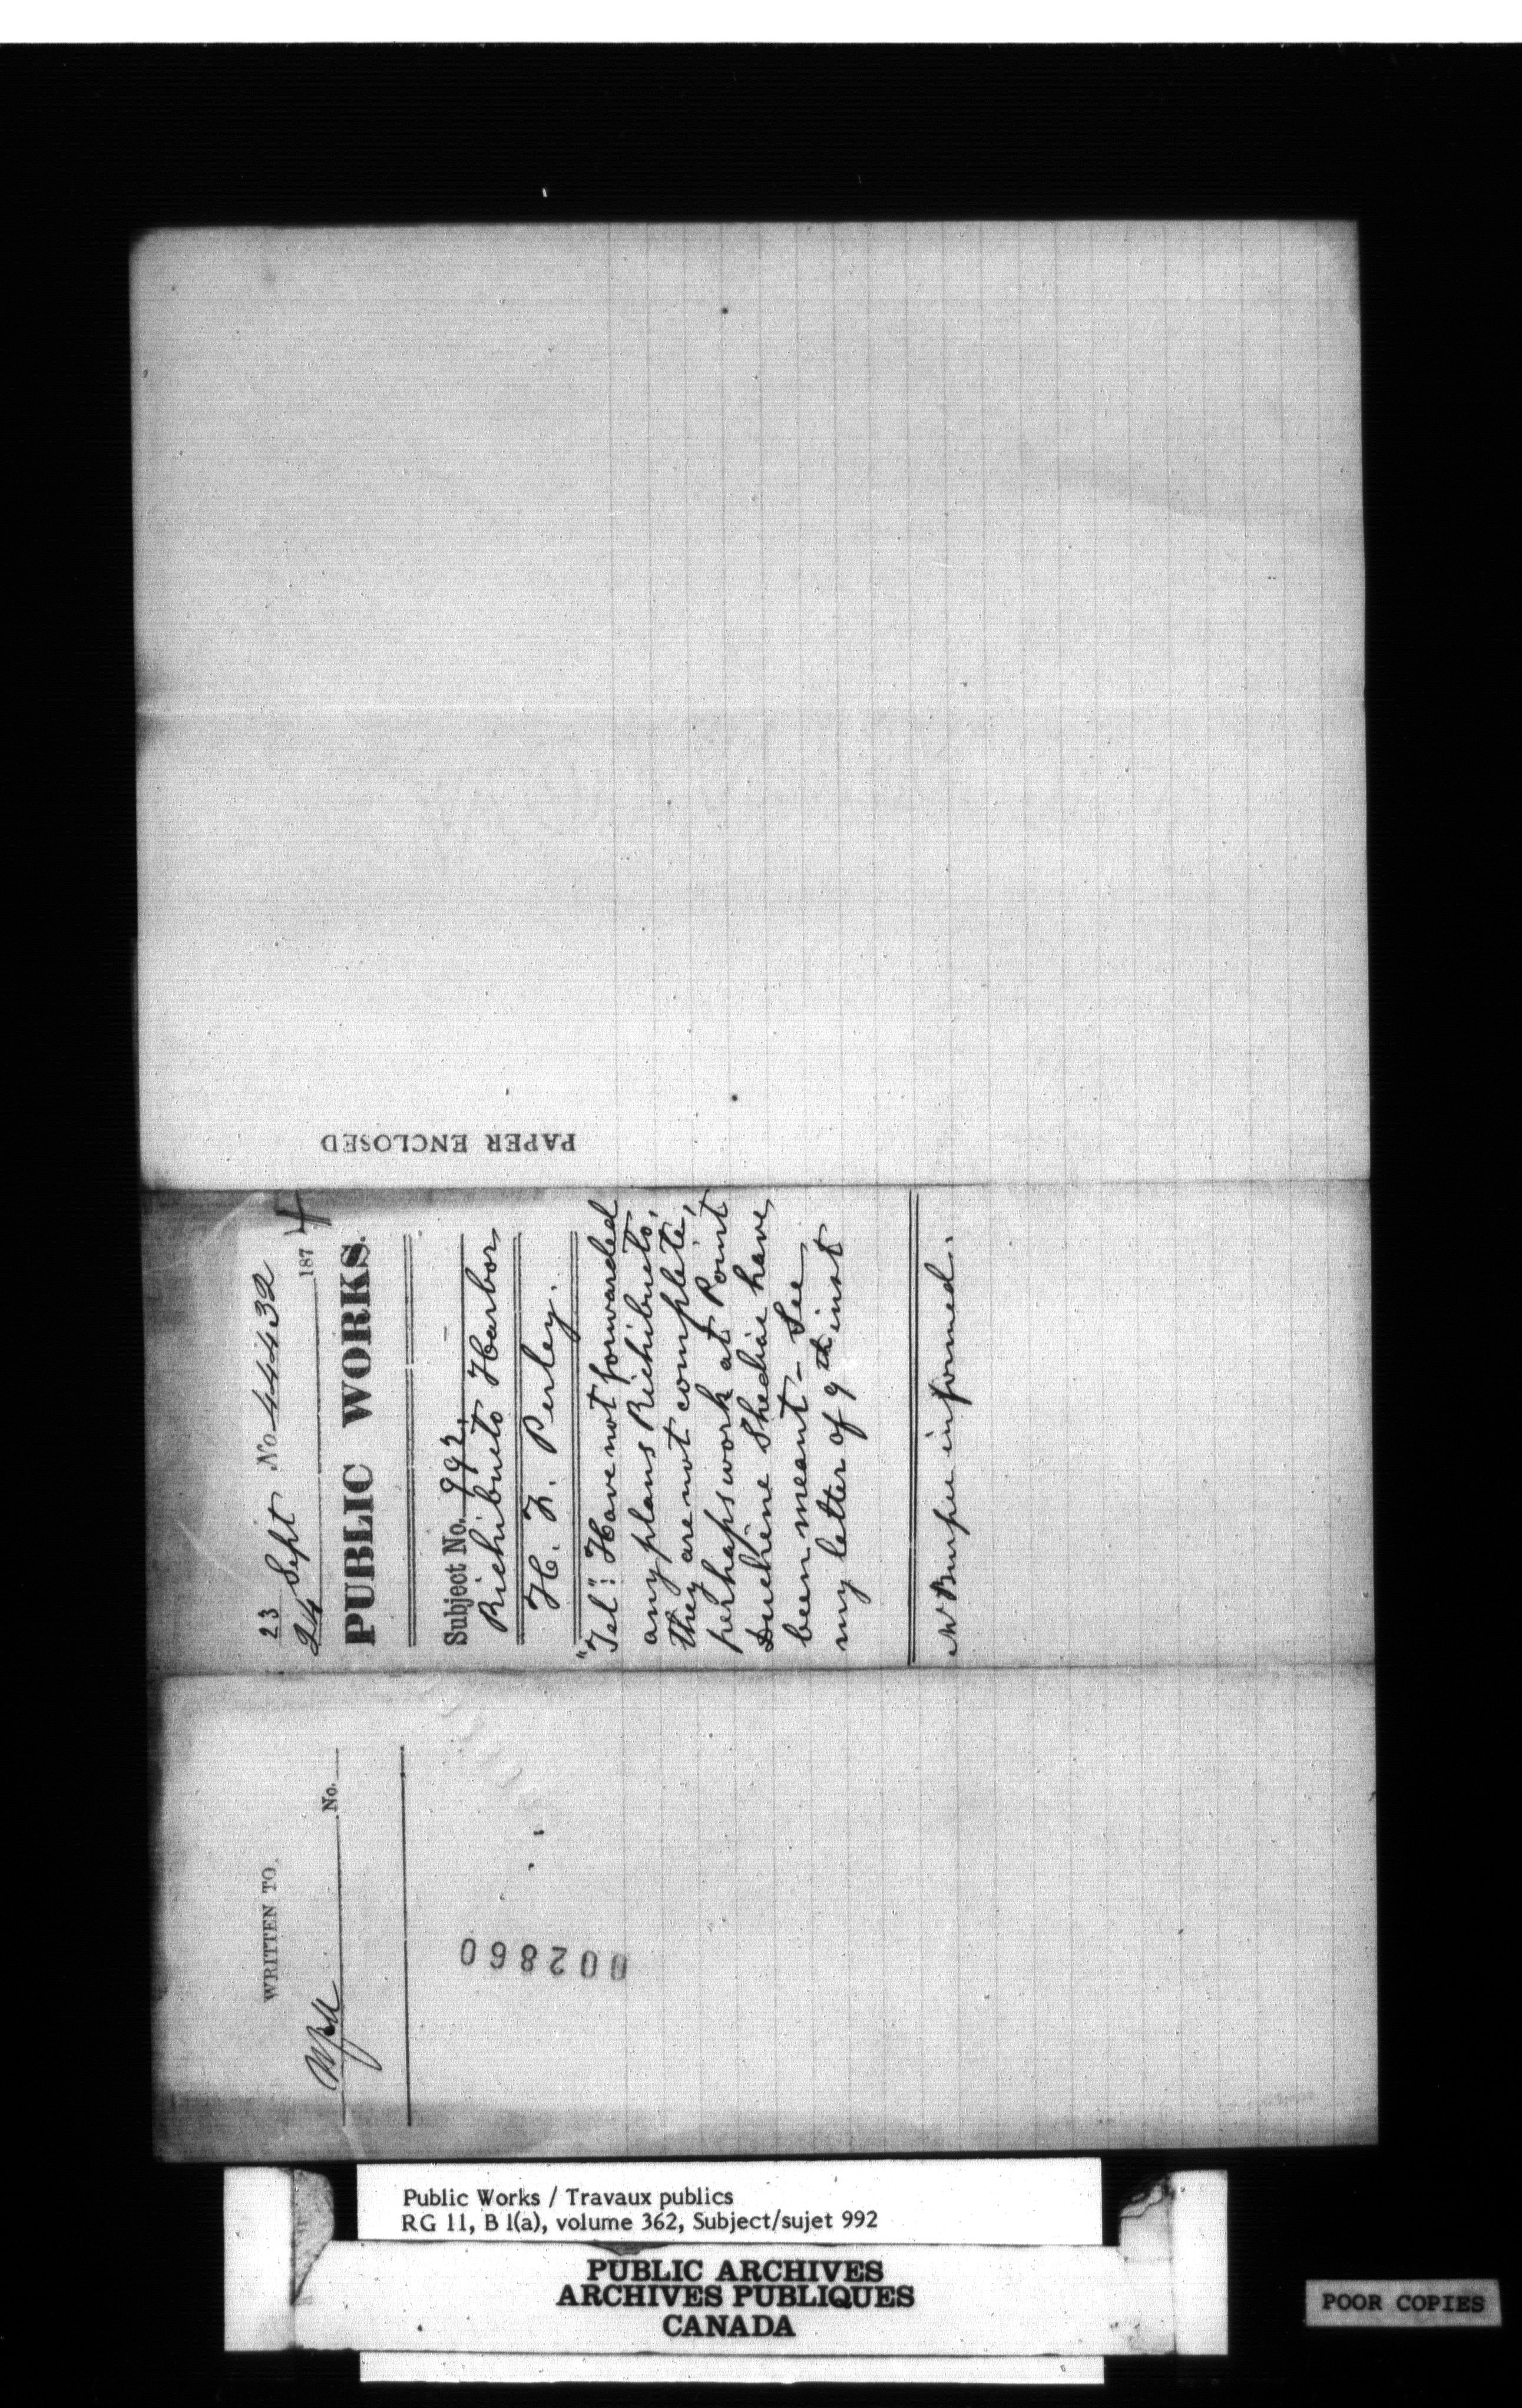 PAPER ENCLOSED
23 Sept No 44432
24 187 4
PUBLIC WORKS.
Subject No. 992.
Richibucto Harbor
H. F. Perley.
"Tel": Have not forwarded
any plans Richibucto,
they are not complete,
perhaps work at Point
Duchene Shediac have
been meant - See
my letter of 9th inst
Mr Burpee informed.
WRITTEN TO
No.
002860
Public Works / Travaux publics
RG 11, B 1(a), volume 362, Subject/sujet 992
PUBLIC ARCHIVES
ARCHIVES PUBLIQUES
CANADA
POOR COPIES